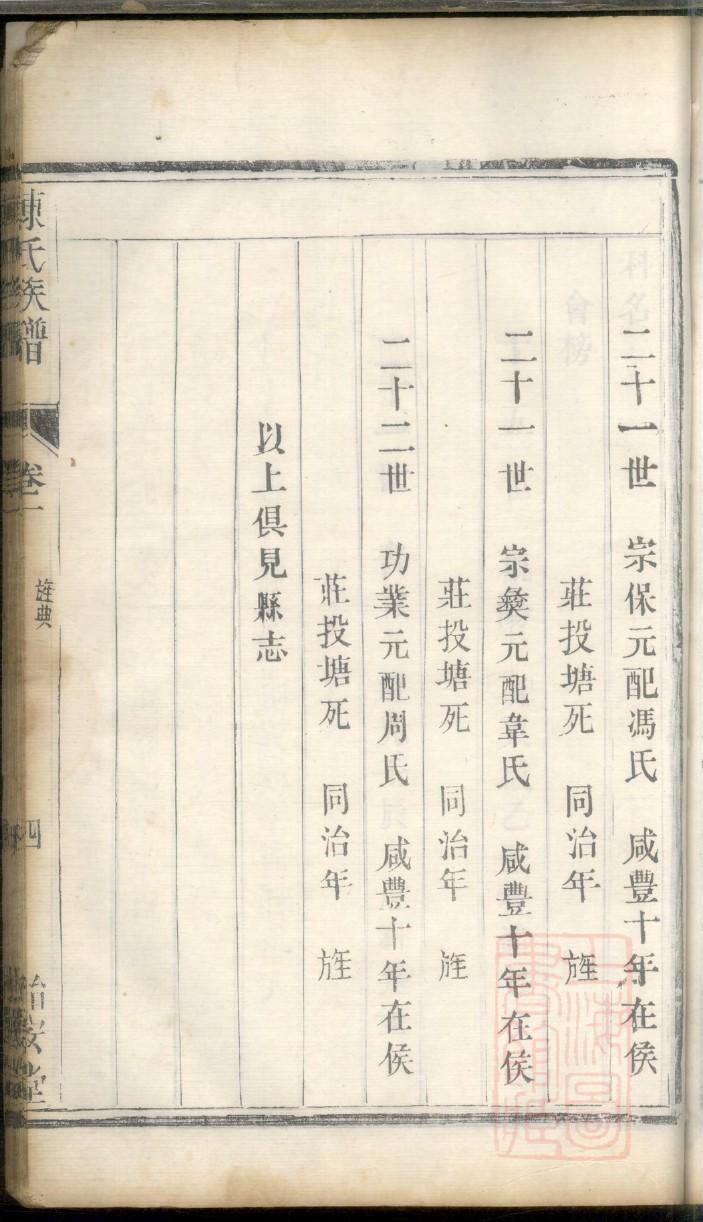 二十一世 宗保元配馮氏 咸豐十年在侯
莊投塘死 同治年 旌
二十一世 宗彝元配韋氏 咸豐十年在侯
莊投塘死 同治年 旌
二十二世 功業元配周氏 咸豐十年在侯
莊投塘死 同治年 旌
以上俱見縣志
陳氏族譜 卷一 旌典 四